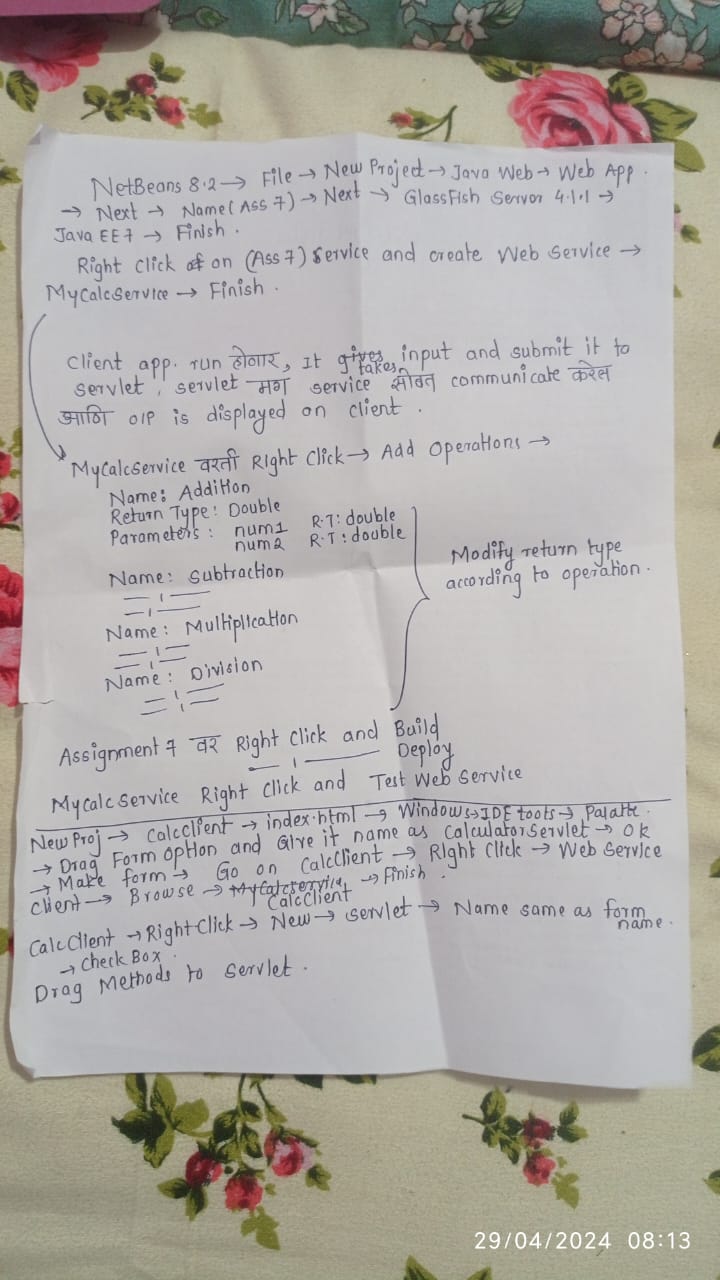 NetBeans 8.2 → File → New Project → Java Web → Web App.
→ Next → Name (Ass 7) → Next → GlassFish Server 4.1.1 →
Java EE7 → Finish.
Right Click on (Ass 7) Service and create Web Service →
MyCalcService → Finish.
Client app. run होणार, It takes input and submit it to
servlet, servlet मग service सोबत communicate करेल
आणि O/P is displayed on client.
MyCalcService वरती Right Click → Add Operations →
Name: Addition
Return Type: Double
Parameters: num1 R.T: double
num2 R.T: double
Name: Subtraction
Name: Multiplication
Name: Division
Modify return type
according to operation.
Assignment 7 वर Right Click and Build
Deploy
MyCalcService Right Click and Test Web Service
New Proj → CalcClient → index.html → Windows → IDE tools → Palatte.
→ Drag Form option and Give it name as CalculatorServlet → OK
→ Make form → Go on CalcClient → Right Click → Web Service
Client → Browse → CalcClient → Finish.
CalcClient → Right Click → New → Servlet → Name same as form
name.
→ Check Box.
Drag Methods to Servlet.
29/04/2024 08:13